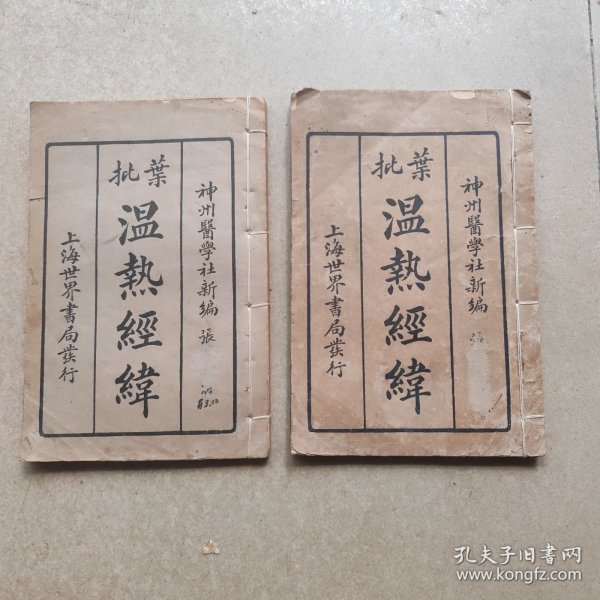 葉批
温熱經緯
神州醫學社新編
張
上海世界書局發行
葉批
温熱經緯
神州醫學社新編
張
上海世界書局發行
孔夫子旧书网
www.kongfz.com